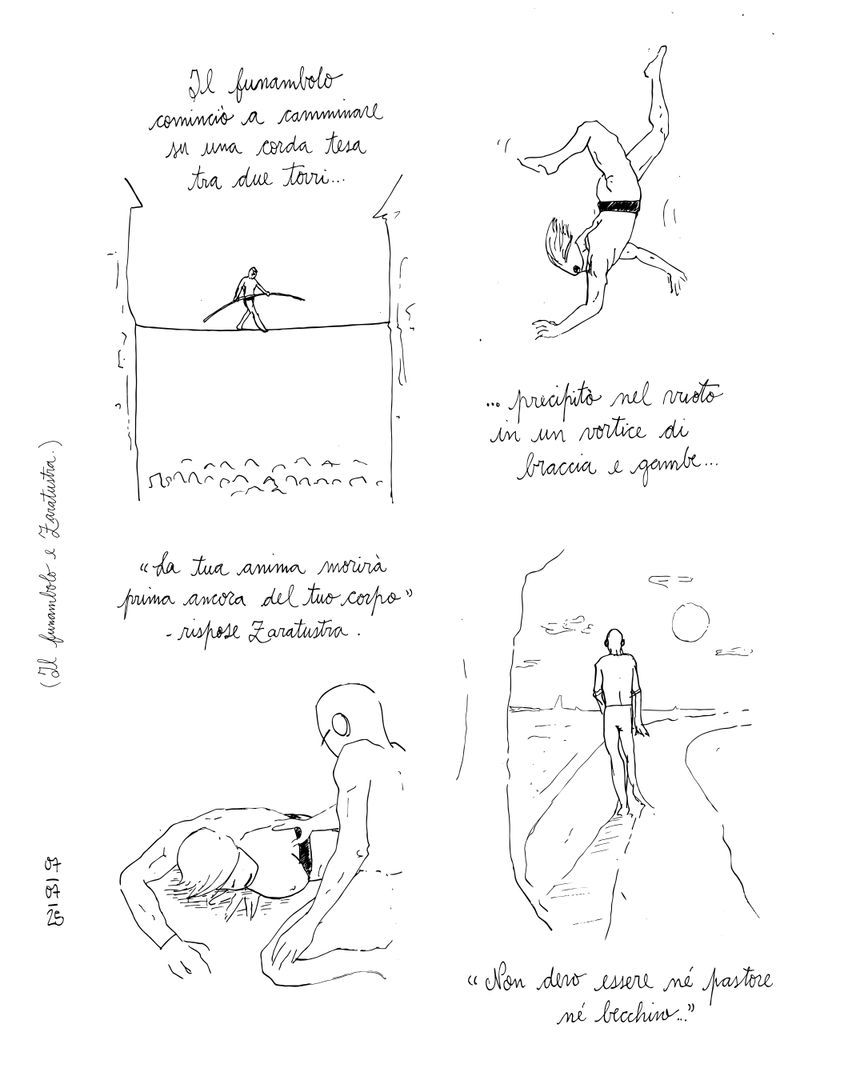 Il funambolo
cominciò a camminare
su una corda tesa
tra due torri...
... precipitò nel vuoto
in un vortice di
braccia e gambe...
"La tua anima morirà
prima ancora del tuo corpo"
- rispose Zaratustra.
"Non devo essere né pastore
né becchino..."
(Il funambolo e Zaratustra.)
25/07/07